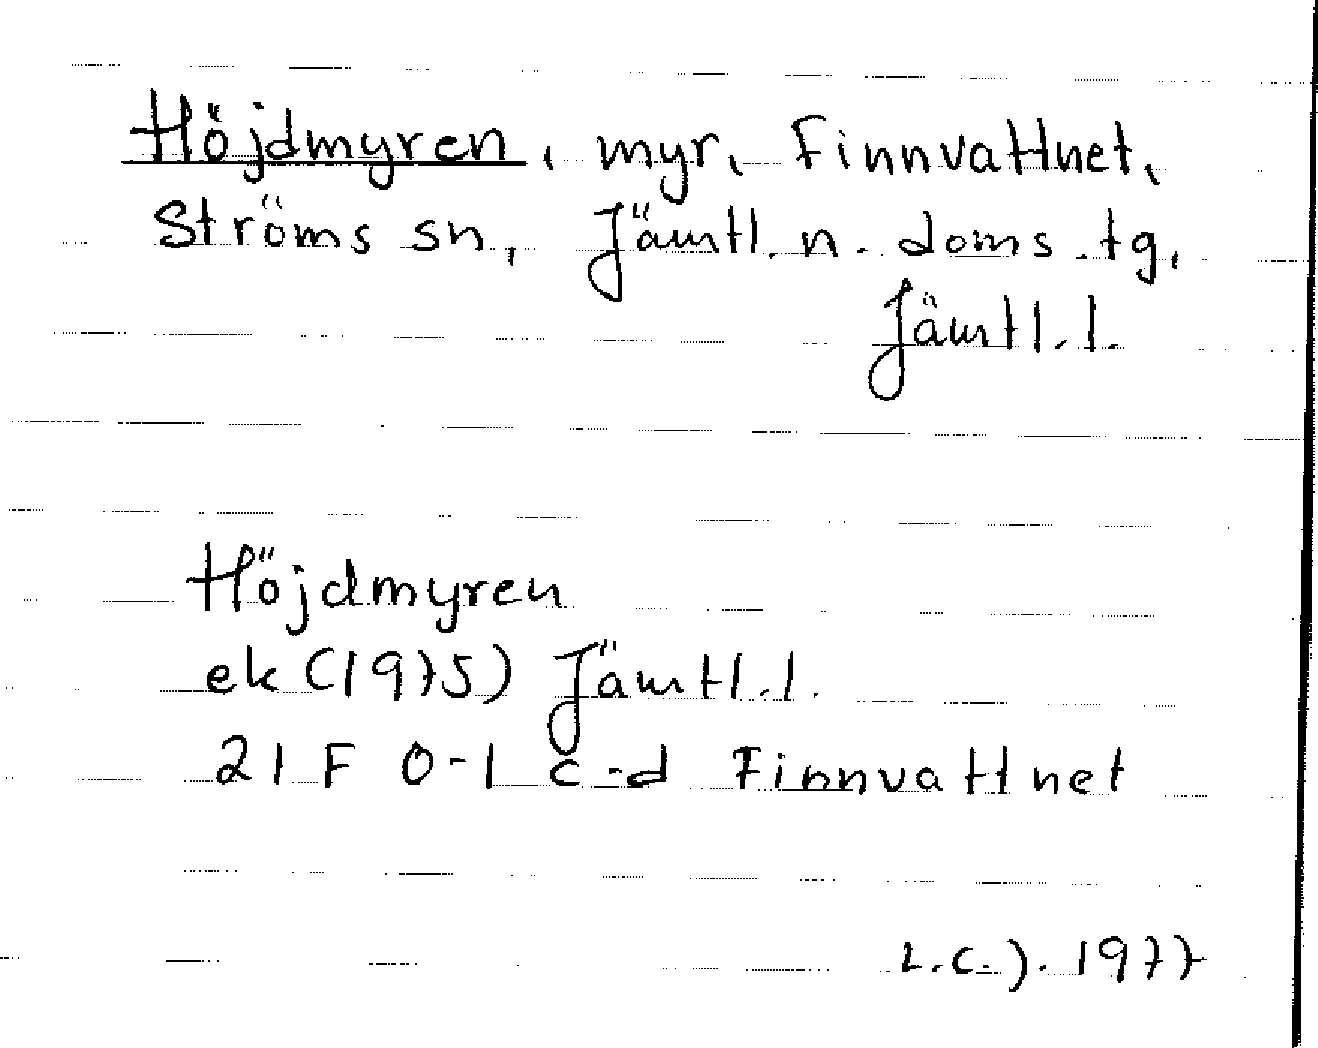 Höjdmyren, myr, Finnvattnet,
Ströms sn, Jämtl. n. doms.tg,
Jämtl.l.
Höjdmyren
ek (1975) Jämtl.l.
21 F 0-1 c-d Finnvattnet
L.C.J. 1977